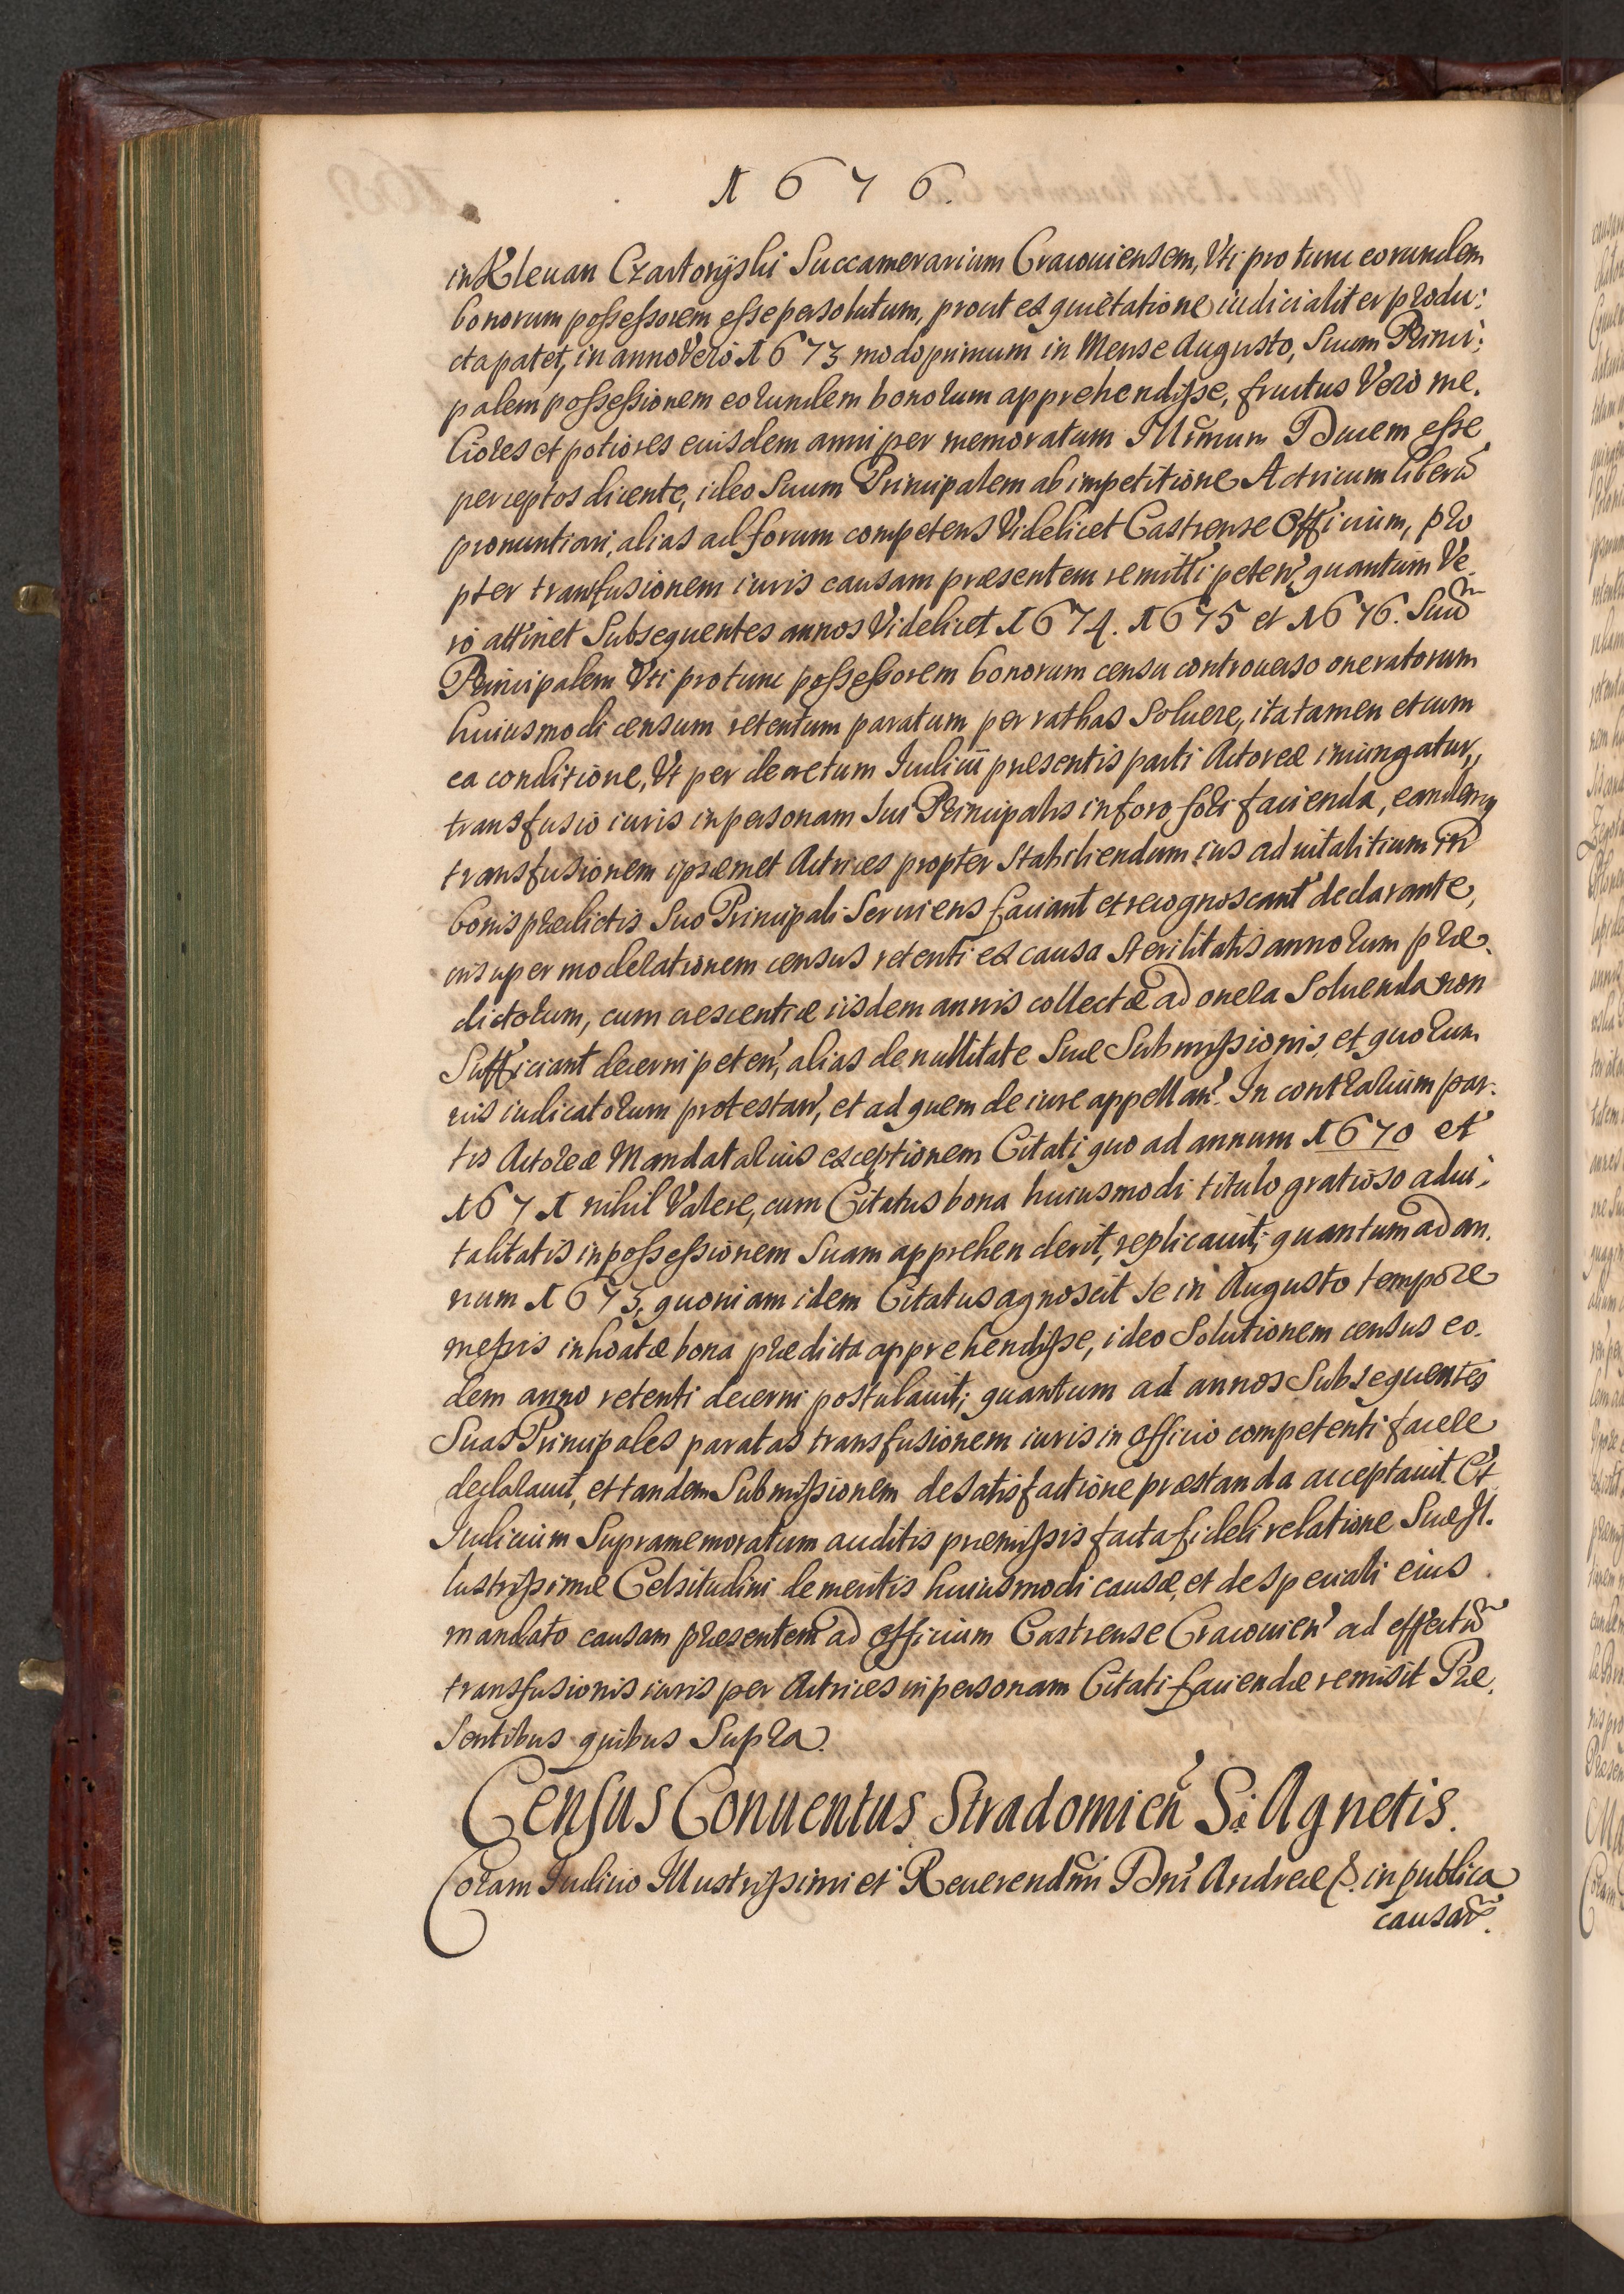 1676.
in Klevan Czartoryski Succamerarium Cracouiensem, Vti pro tunc eorundem
bonorum possessorem esse persolutum, prout ex quietatione iudicialiter produ:
cta patet, in anno Vero 1673 modo primum in Mense Augusto, Suum Princi:
palem possessionem eorundem bonorum apprehendisse, fructus Vero me.
liores et potiores eiusdem anni per memoratum Illrmum Ducem esse
perceptos dicente, ideo Suum Principalem ab impetitione Actricum liberũ
pronuntiari, alias ad forum competens Videlicet Castrense Officium, pro
pter transfusionem iuris causam præsentem remitti peten', quantum Ve
ro attinet Subsequentes annos Videlicet 1674. 1675 et 1676. Suũ
Principalem Vti pro tunc possessorem bonorum censu controuerso oneratorum
huiusmodi censum retentum paratum per rathas Soluere, ita tamen et cum
ea conditione, Vt per decretum Iudicii præsentis parti Actoreæ iniungatur,
transfusio iuris in personam Sui Principalis in foro fori facienda, eandemq
transfusionem ipsæmet Actrices propter Stabiliendum ius aduitalitium in
bonis prædictis Suo Principali Seruiens faciant et recognoscant declarante,
insuper moderationem census retenti ex causa Sterilitatis annorum præ.
dictorum, cum crescentiæ iisdem annis collectæ ad onera Soluenda non
Sufficiant decerni peten', alias de nullitate Suæ Submissionis, et quorum
uis iudicatorum protestan', et ad quem de iure appellan'. In contrarium par.
tis Actoreæ Mandatarius exceptionem Citati quo ad annum 1670 et
1671 nihil Valere, cum Citatus bona huiusmodi titulo gratioso adui:
talitatis in possessionem Suam apprehenderit, replicauit; quantum ad an.
num 1673. quoniam idem Citatus agnoscit Se in Augusto tempore
messis inhoatæ bona prædicta apprehendisse, ideo Solutionem census eo.
dem anno retenti decerni postulauit; quantum ad annos Subsequentes
Suas Principales paratas transfusionem iuris in officio competenti facere
declarauit, et tandem Submissionem de satisfactione præstanda acceptauit. Et
Iudicium Supramemoratum auditis præmissis facta fideli relatione Suæ Il.
lustrissimæ Celsitudini de meritis huiusmodi causæ, et de speciali eius
mandato causam præsentem ad officium Castrense Cracouien' ad effectũ
transfusionis iuris per Actrices in personam Citati faciendæ remisit Præ.
Sentibus quibus Supra.
Census Conuentus Stradomien' S: Agnetis.
Coram Iudicio Illustrissimi et Reuerendmi Dni Andreæ &. in publica
causar̃.